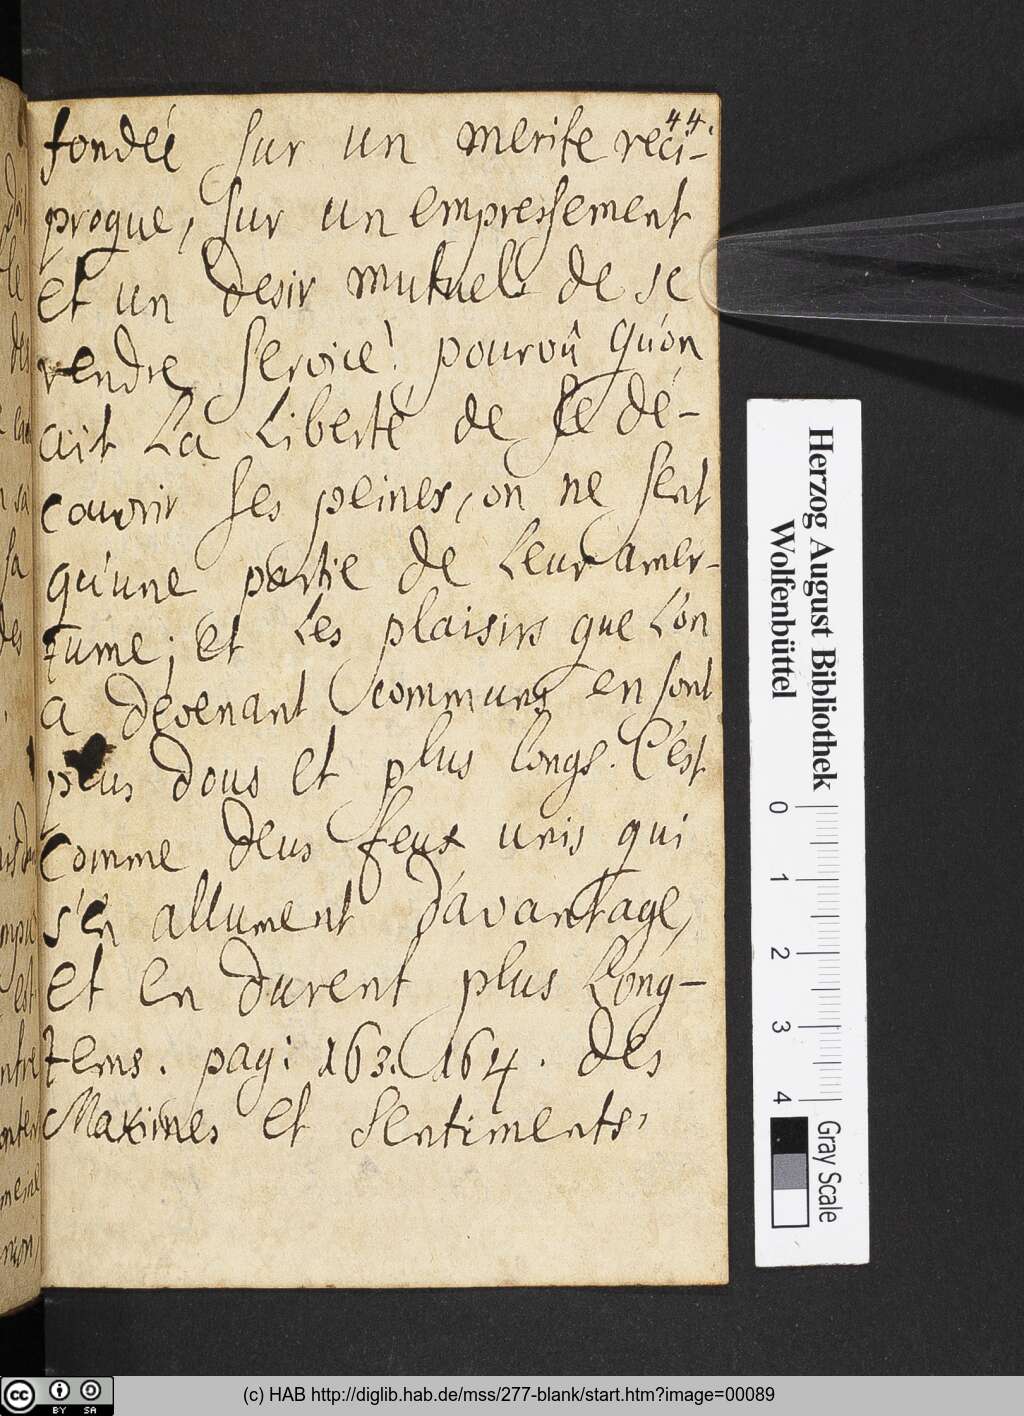 44.
fondée sur un merite reci-
proque, sur un empressement
et un desir mutuels de se
rendre service! pourvû qu'on
ait La Liberté de se dé-
couvrir ses peines, on ne sent
qu'une partie de Leur amer-
tume; et Les plaisirs que L'on
a devenant communs en sont
plus dous et plus longs. C'est
comme deus feux unis qui
s'en allument d'avantage,
et en durent plus Long-
tems. pag: 163. 164. des
Maximes et Sentiments,
Herzog August Bibliothek
Wolfenbüttel
0 1 2 3 4
Gray Scale
cc BY SA
(c) HAB http://diglib.hab.de/mss/277-blank/start.htm?image=00089